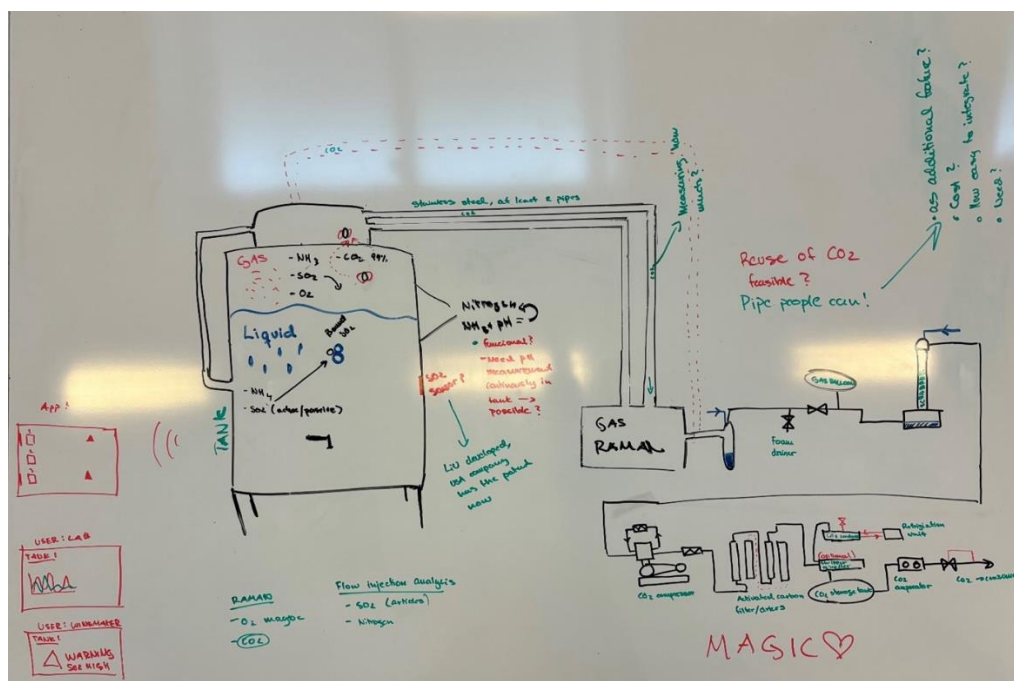 CO2
Stainless steel, at least 2 pipes
CO2
Measuring, how
much?
CO2
as additional feature?
Cost?
How easy to integrate?
Need?
Reuse of CO2
feasible?
Pipe people can!
GAS
- NH3
- SO2
- O2
- CO2 99%
Liquid
Bound
SO2
- NH4
- SO2 (active/passive)
TANK
1
SO2
sensor?
Nitrogen
NH3 + pH =
funcional?
- Need pH
measurement
continously in
tank →
possible?
LiU developed,
USA company
has the patent
now
GAS
RAMAN
Foam
GAS BALLOON
App!
USER: LAB
TANK 1
USER: WINEMAKER
TANK 1
WARNING
SO2 HIGH
RAMAN
- O2 maybe
- CO2
Flow injection analysis
- SO2
- Nitrogen
CO2 compressor
Activated carbon
filter/driers
(optional)
CO2 storage tank
Refrigeration
unit
CO2
evaporator
CO2 →
MAGIC